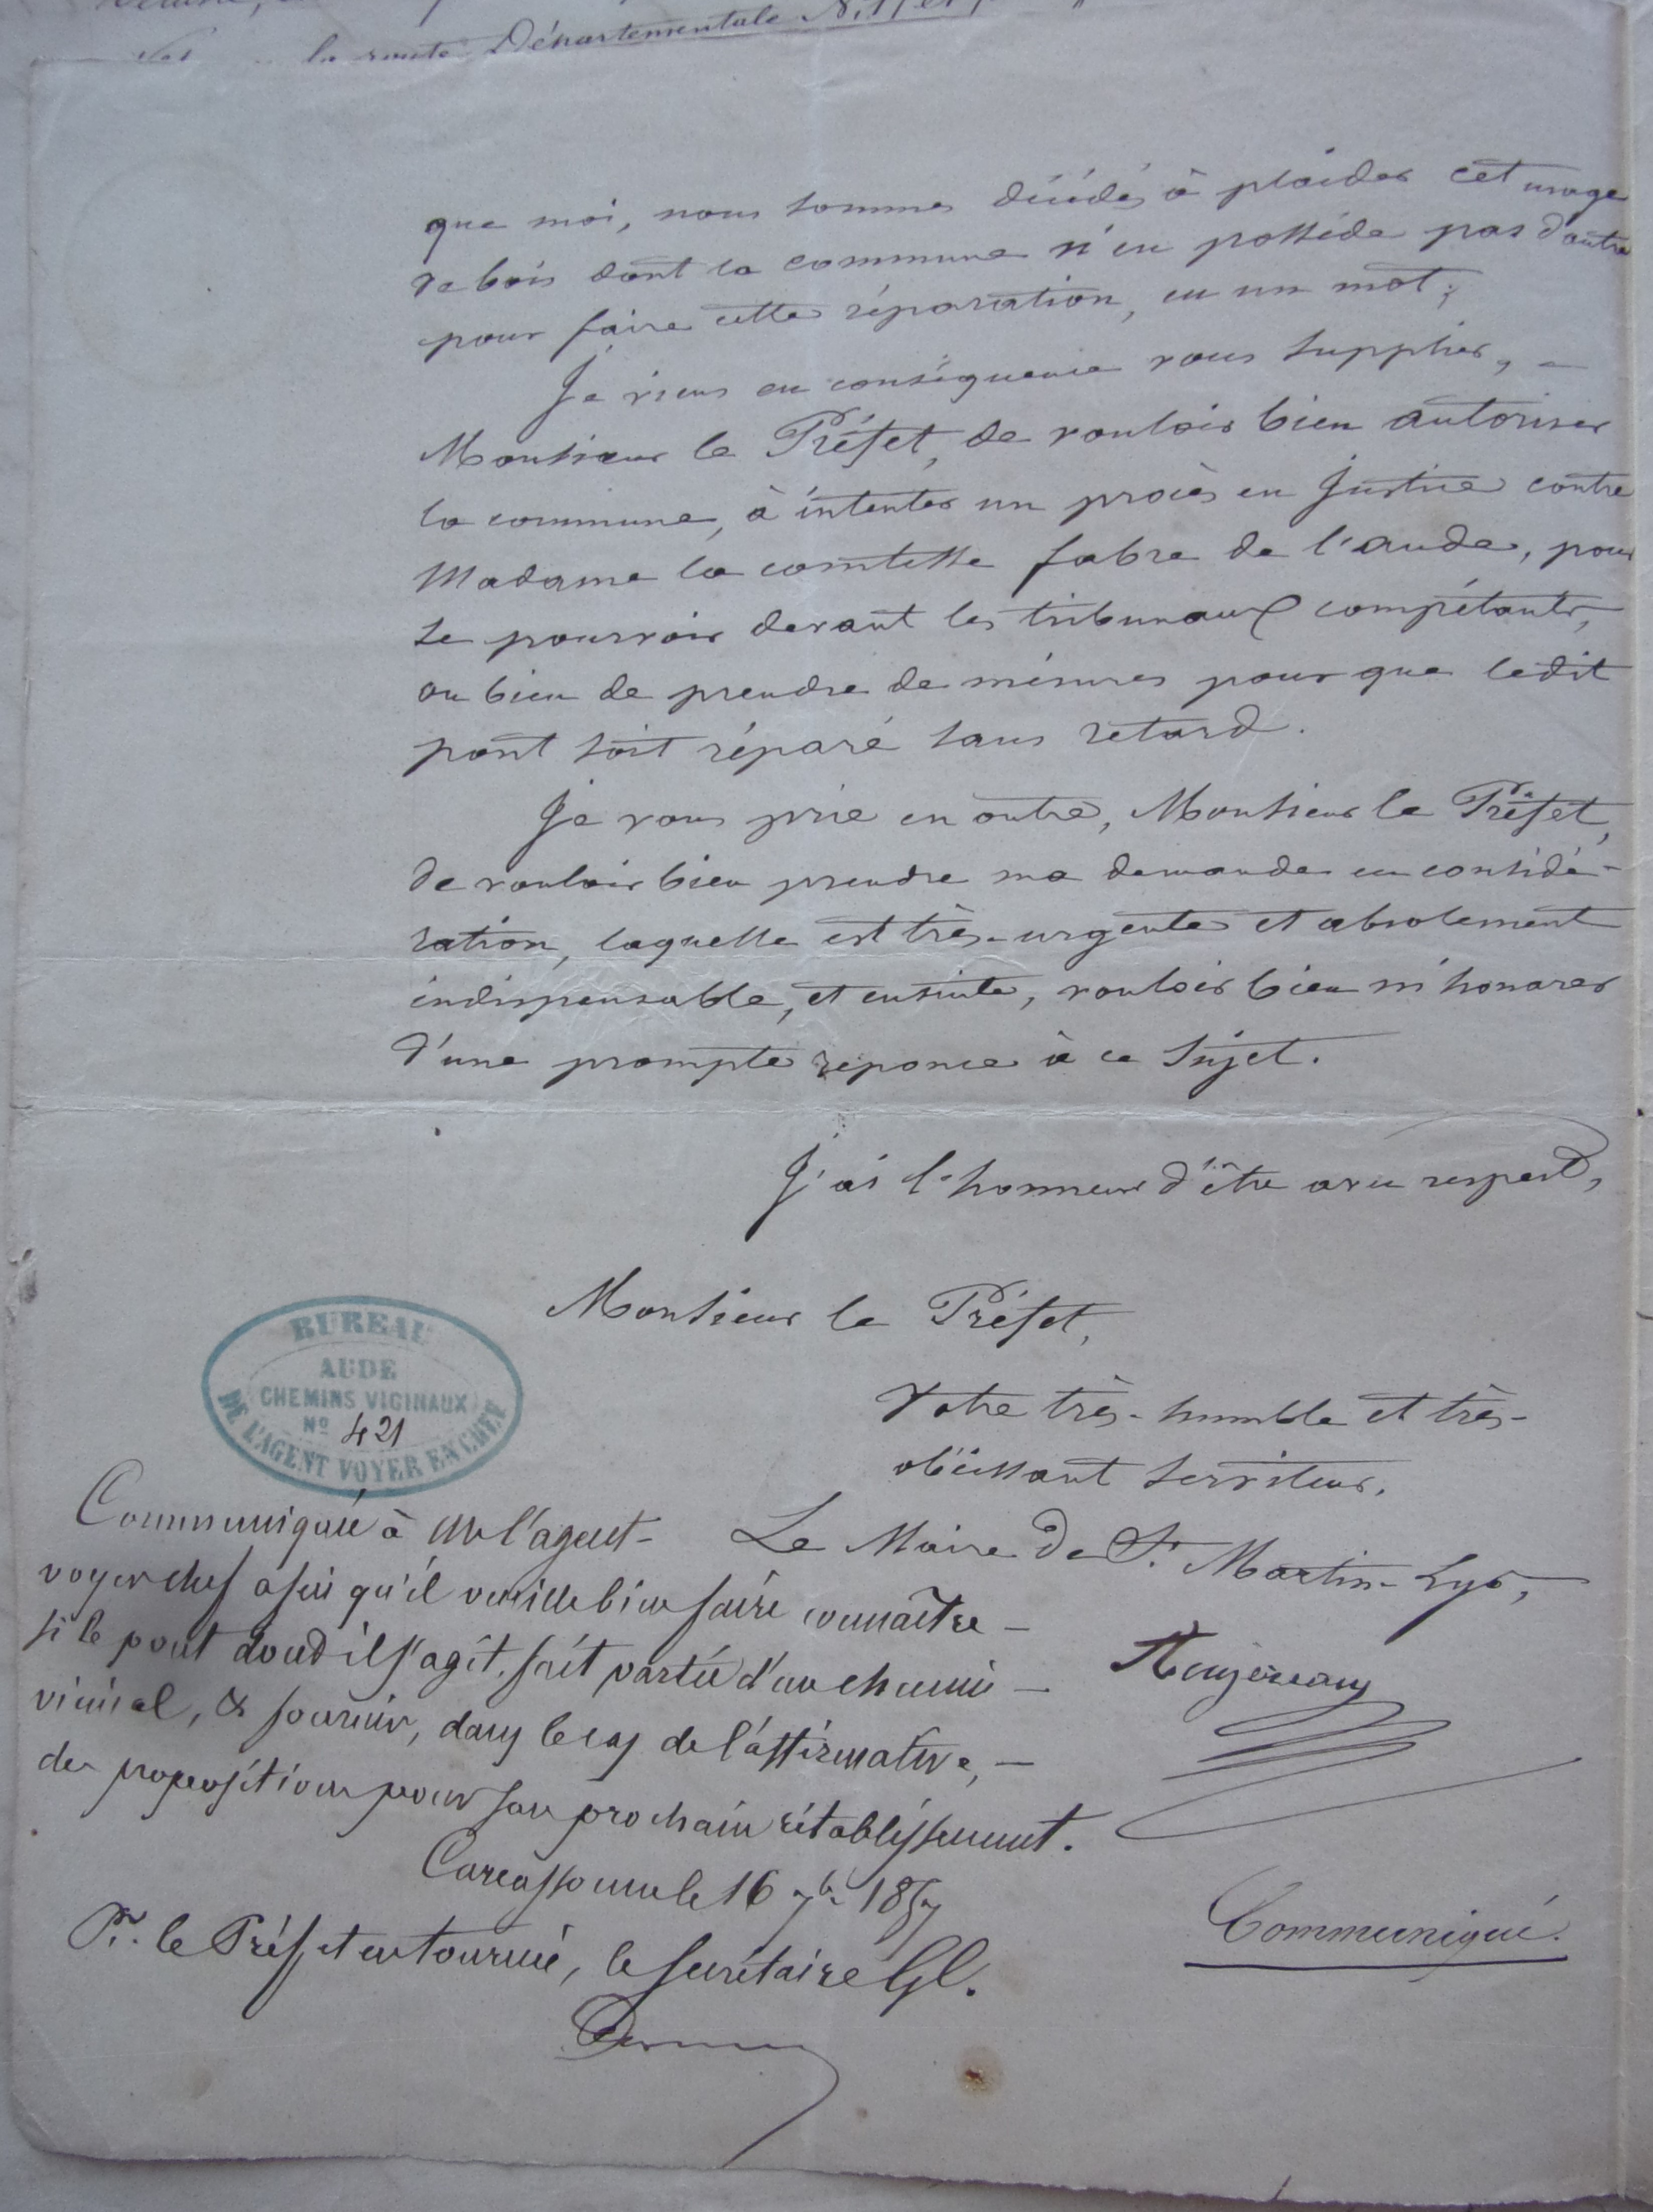 la route Départementale N.
que moi, nous sommes décidés à plaider cet usage
de bois dont la commune n'en possède pas d'autre
pour faire cette réparation, en un mot;
Je viens en conséquence vous supplier, -
Monsieur le Préfet, de vouloir bien autoriser
la commune, à intenter un procès en Justice contre
Madame la comtesse fabre de l'aude, pour
se pourvoir devant les tribunaux compétants,
ou bien de prendre de mésures pour que ledit
pont soit réparé sans retard.
Je vous prie en outre, Monsieur le Préfet,
de vouloir bien prendre ma demande en considé-
ration, laquelle est très-urgente et absolement
indispensable, et ensuite, vouloir bien m'honorer
d'une prompte réponce à ce Sujet.
J'ai l'honneur d'être avec respect,
Monsieur le Préfet,
Votre très-humble et très-
obéissant serviteur.
Le Maire de St Martin-Lys,
BUREAU
AUDE
CHEMINS VICINAUX
No 421
DE L'AGENT VOYER EN CHEF
Communiqué à Mr l'agent-
voyer chef afin qu'il veuille bien faire connaître -
si le pont dont il s'agit, fait partie d'un chemin -
vicinal, & fournir, dans le cas de l'affirmative, -
des propositions pour son prochain rétablissement.
Carcassonne le 16 7bre 1857
Pr. le Préfet en tournée, le secrétaire Gl.
Communiqué.